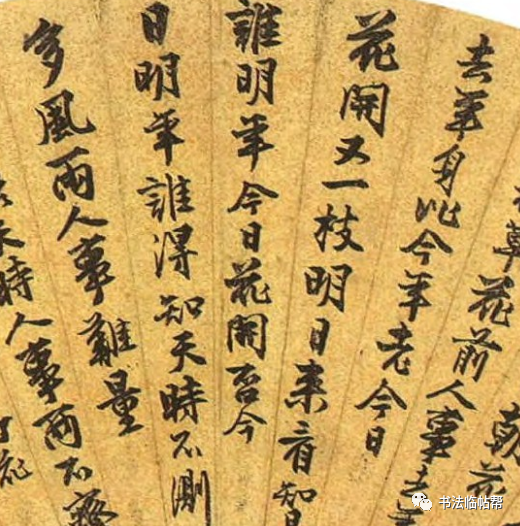 朝花
草花前人事去
去年身比今年老今日
花開又一枝明日來看知
誰明年今日花開否今
日明年誰得知天時不測
多風雨人事難量
天時人事兩不齊
花
書法临帖帮